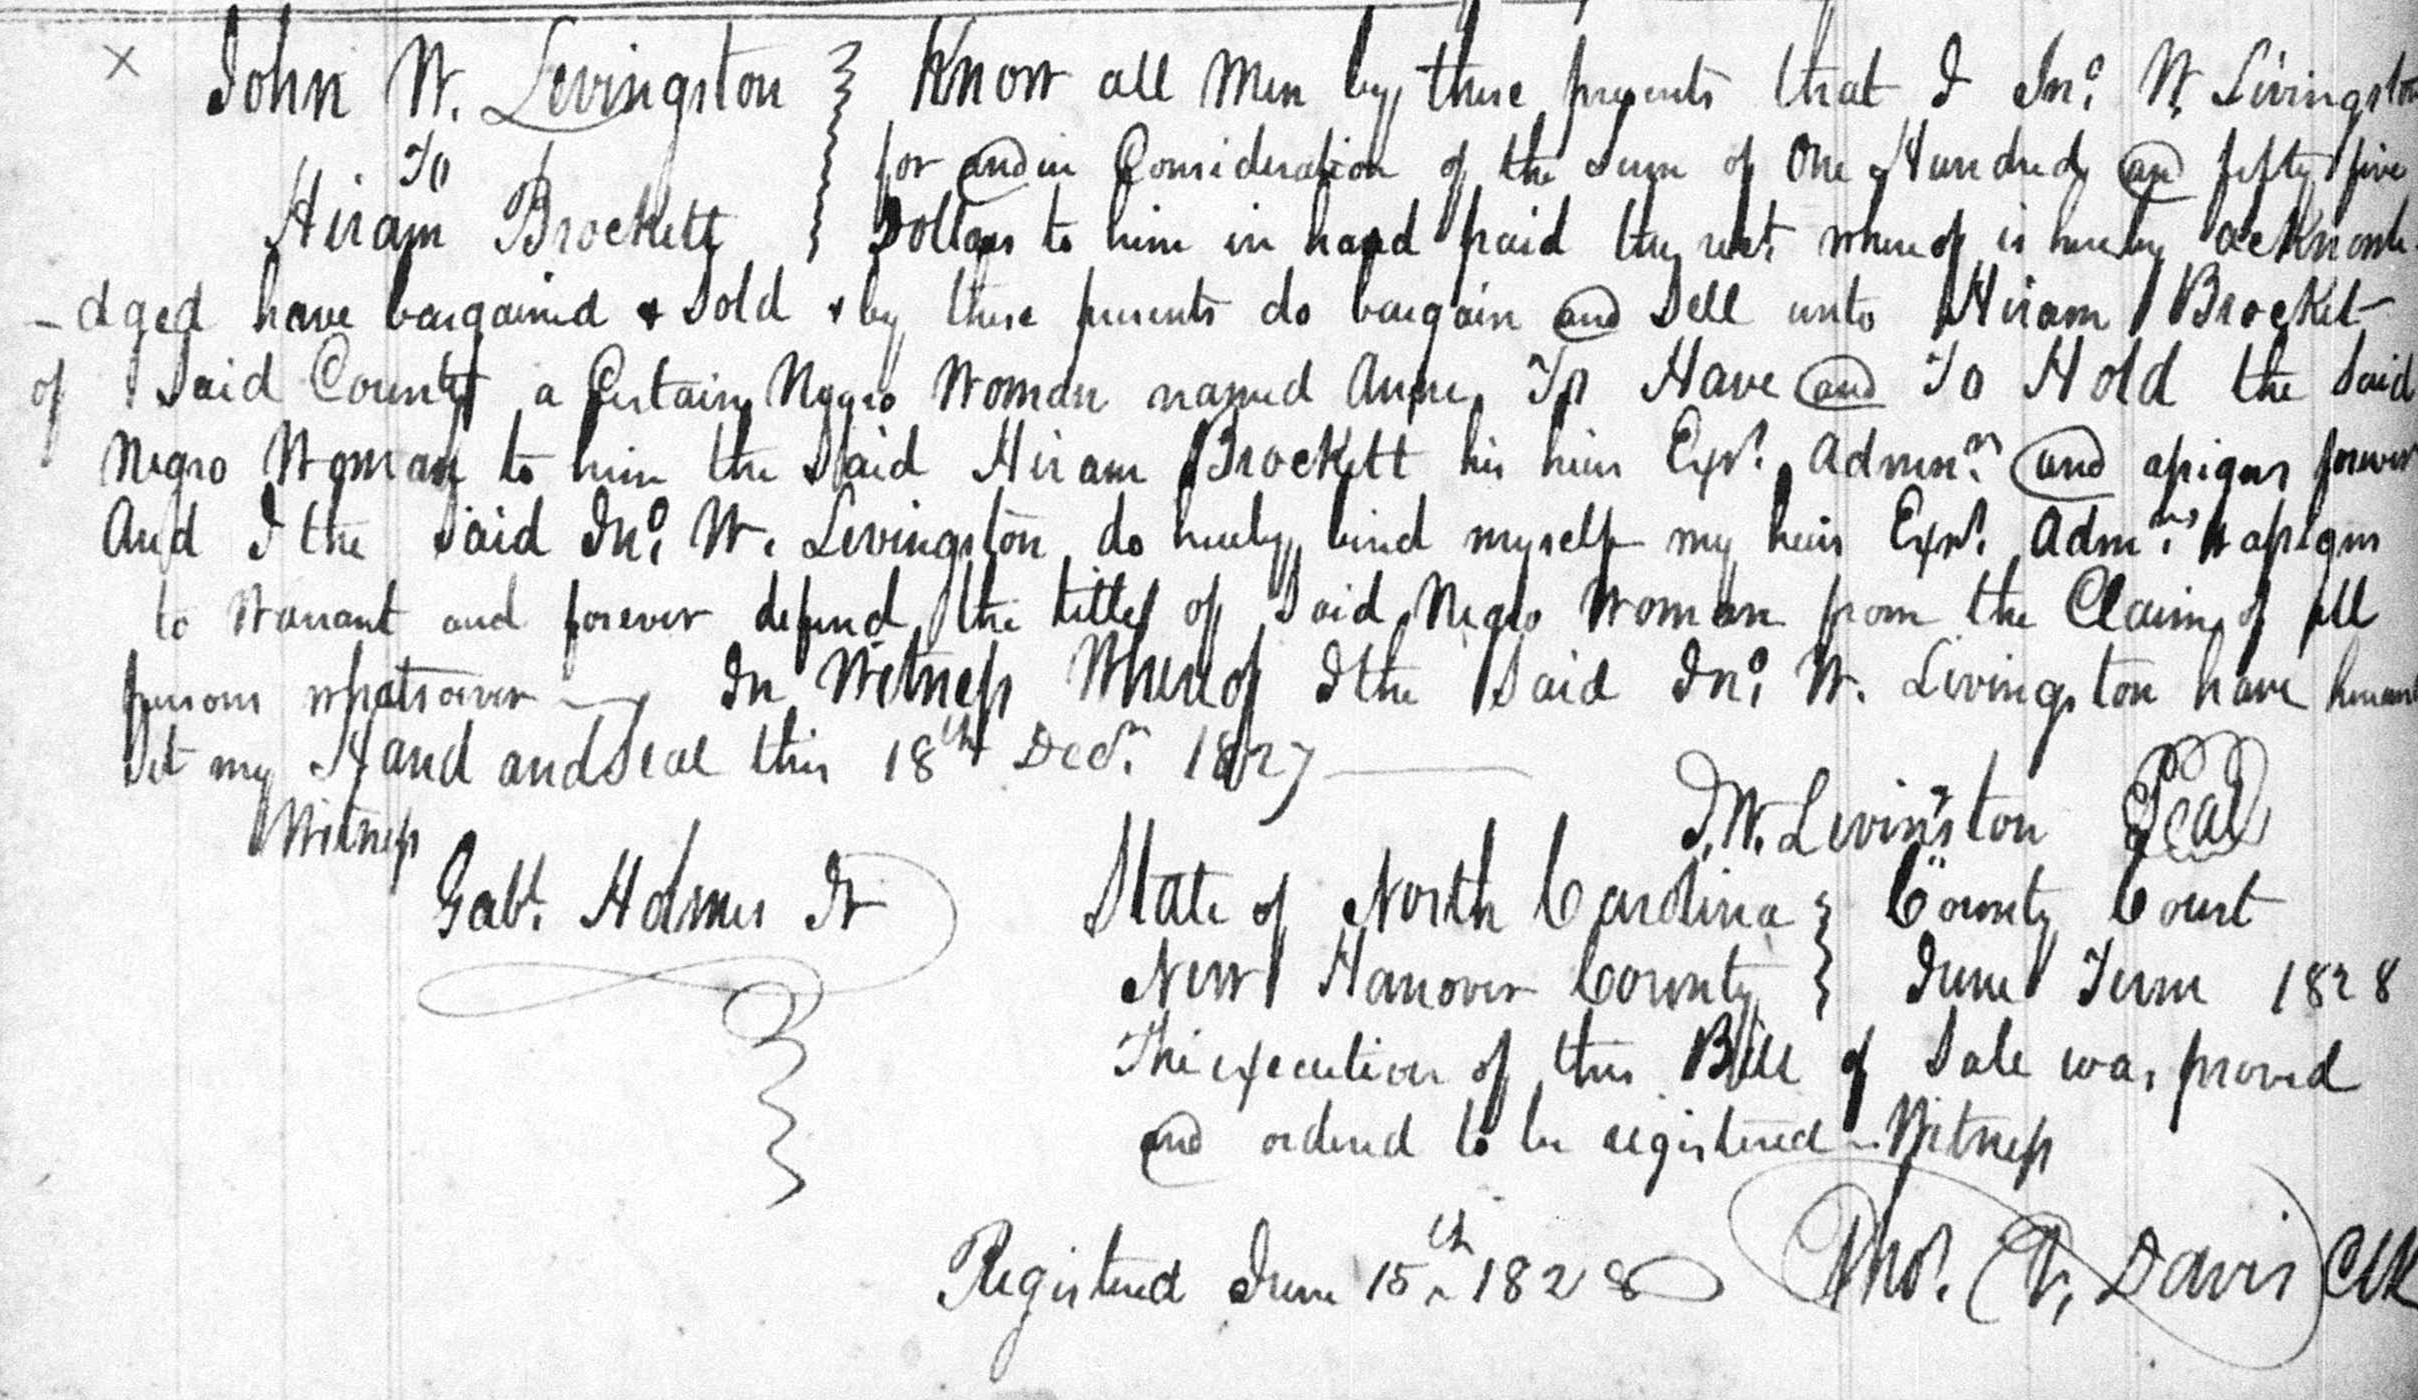 John W. Levingston } Know all Men by these presents that I Jno. W. Livingston
To
for and in Consideration of the Sum of One Hundred and fifty five
Hiram Brockett } Dollars to him in hand paid the rect whereof is hereby acknowle
-dged have bargained & Sold & by these presents do bargain and Sell unto Hiram Brocket
of Said County a Certain Negro Woman named Anne To Have and To Hold the Said
Negro Woman to him the Said Hiram Brockett his heirs Exrs. Admnrs. and assigns forever
And I the Said Jno. W. Levingston do hereby bind myself my heirs Exrs. Admrs. & assigns
to Warrant and forever defend the title of Said Negro Woman from the Claim of all
persons whatsoever In Witness Whereof I the Said Jno. W. Livingston have hereunto
Set my Hand and Seal this 18th Decr. 1827
J. W. Levingston Seal
Witness
Gabl. Holmes Jr
State of North Carolina } County Court
New Hanover County } June Term 1828
The execution of this Bill of Sale was proved
and orderd to be registered - Witness
Registered June 15th 1828 Thos. F. Davis Clk